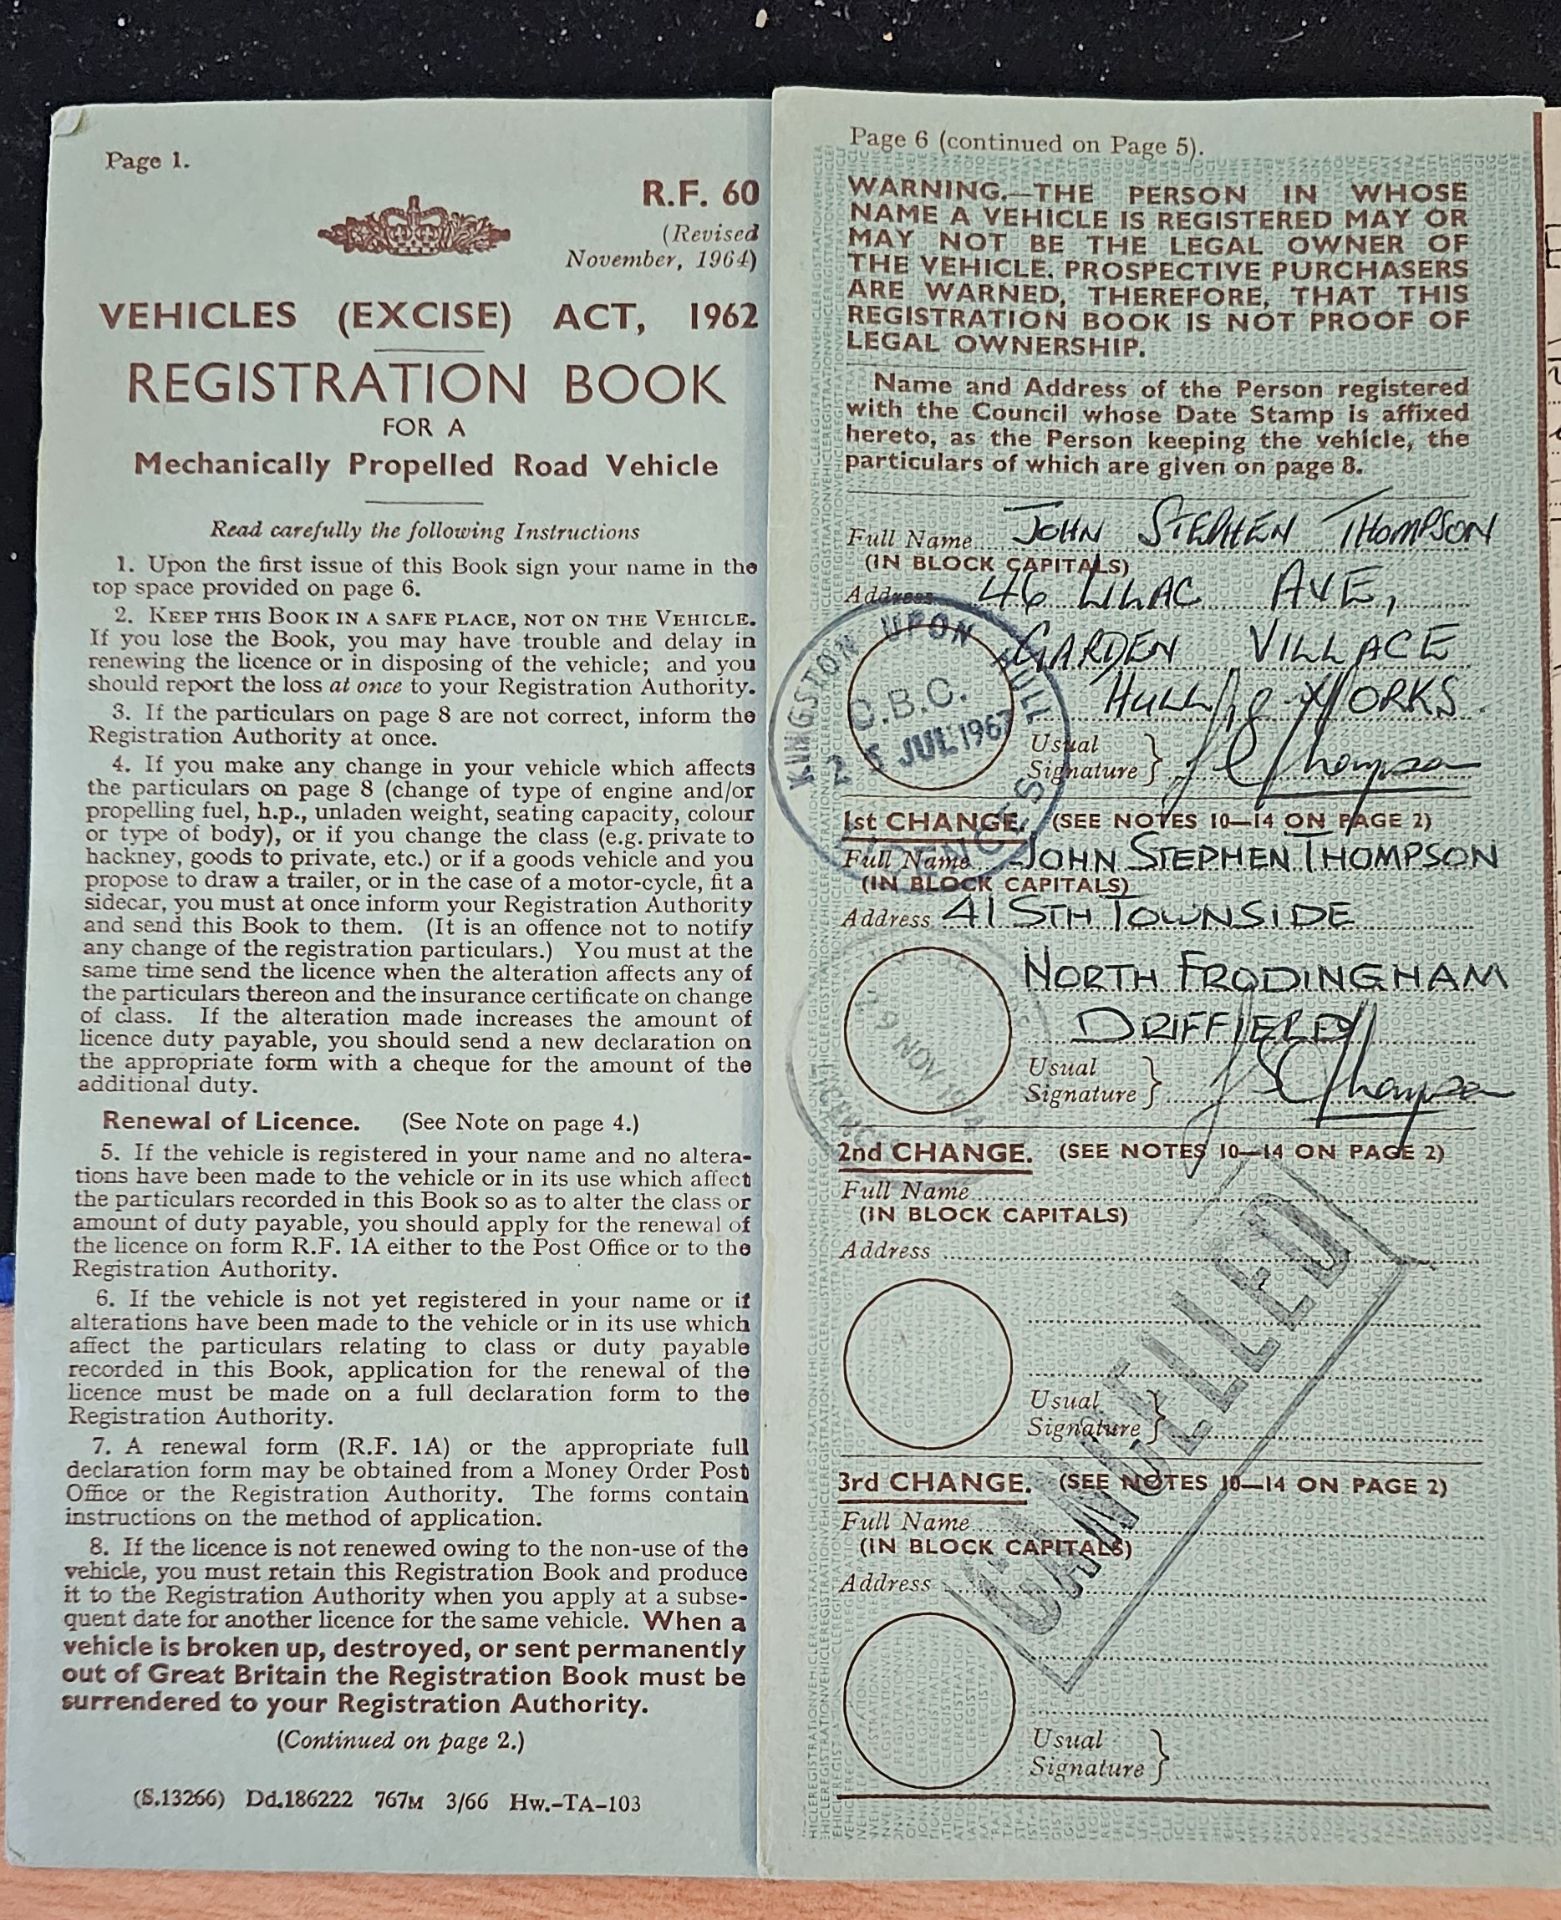 Page 1.
R.F. 60
(Revised
November, 1964)
VEHICLES (EXCISE) ACT, 1962
REGISTRATION BOOK
FOR A
Mechanically Propelled Road Vehicle
Read carefully the following Instructions
1. Upon the first issue of this Book sign your name in the
top space provided on page 6.
2. KEEP THIS BOOK IN A SAFE PLACE, NOT ON THE VEHICLE.
If you lose the Book, you may have trouble and delay in
renewing the licence or in disposing of the vehicle; and you
should report the loss at once to your Registration Authority.
3. If the particulars on page 8 are not correct, inform the
Registration Authority at once.
4. If you make any change in your vehicle which affects
the particulars on page 8 (change of type of engine and/or
propelling fuel, h.p., unladen weight, seating capacity, colour
or type of body), or if you change the class (e.g. private to
hackney, goods to private, etc.) or if a goods vehicle and you
propose to draw a trailer, or in the case of a motor-cycle, fit a
sidecar, you must at once inform your Registration Authority
and send this Book to them. (It is an offence not to notify
any change of the registration particulars.) You must at the
same time send the licence when the alteration affects any of
the particulars thereon and the insurance certificate on change
of class. If the alteration made increases the amount of
licence duty payable, you should send a new declaration on
the appropriate form with a cheque for the amount of the
additional duty.
Renewal of Licence. (See Note on page 4.)
5. If the vehicle is registered in your name and no altera-
tions have been made to the vehicle or in its use which affect
the particulars recorded in this Book so as to alter the class or
amount of duty payable, you should apply for the renewal of
the licence on form R.F. 1A either to the Post Office or to the
Registration Authority.
6. If the vehicle is not yet registered in your name or if
alterations have been made to the vehicle or in its use which
affect the particulars relating to class or duty payable
recorded in this Book, application for the renewal of the
licence must be made on a full declaration form to the
Registration Authority.
7. A renewal form (R.F. 1A) or the appropriate full
declaration form may be obtained from a Money Order Post
Office or the Registration Authority. The forms contain
instructions on the method of application.
8. If the licence is not renewed owing to the non-use of the
vehicle, you must retain this Registration Book and produce
it to the Registration Authority when you apply at a subse-
quent date for another licence for the same vehicle. When a
vehicle is broken up, destroyed, or sent permanently
out of Great Britain the Registration Book must be
surrendered to your Registration Authority.
(Continued on page 2.)
(S.13266) Dd.186222 767M 3/66 Hw.-TA-103
Page 6 (continued on Page 5).
WARNING.—THE PERSON IN WHOSE
NAME A VEHICLE IS REGISTERED MAY OR
MAY NOT BE THE LEGAL OWNER OF
THE VEHICLE. PROSPECTIVE PURCHASERS
ARE WARNED, THEREFORE, THAT THIS
REGISTRATION BOOK IS NOT PROOF OF
LEGAL OWNERSHIP.
Name and Address of the Person registered
with the Council whose Date Stamp is affixed
hereto, as the Person keeping the vehicle, the
particulars of which are given on page 8.
Full Name JOHN STEPHEN THOMPSON
(IN BLOCK CAPITALS)
Address 46 LILAC AVE,
GARDEN VILLAGE
HULL YORKS.
KINGSTON UPON HULL
C.B.C.
25 JUL 1967
LICENCES
Usual
Signature } J S Thompson
1st CHANGE. (SEE NOTES 10—14 ON PAGE 2)
Full Name JOHN STEPHEN THOMPSON
(IN BLOCK CAPITALS)
Address 41 STH TOWNSIDE
NORTH FRODINGHAM
DRIFFIELD
NOV 1974
Usual
Signature } J S Thompson
2nd CHANGE. (SEE NOTES 10—14 ON PAGE 2)
Full Name
(IN BLOCK CAPITALS)
Address
Usual
Signature }
CANCELLED
3rd CHANGE. (SEE NOTES 10—14 ON PAGE 2)
Full Name
(IN BLOCK CAPITALS)
Address
Usual
Signature }